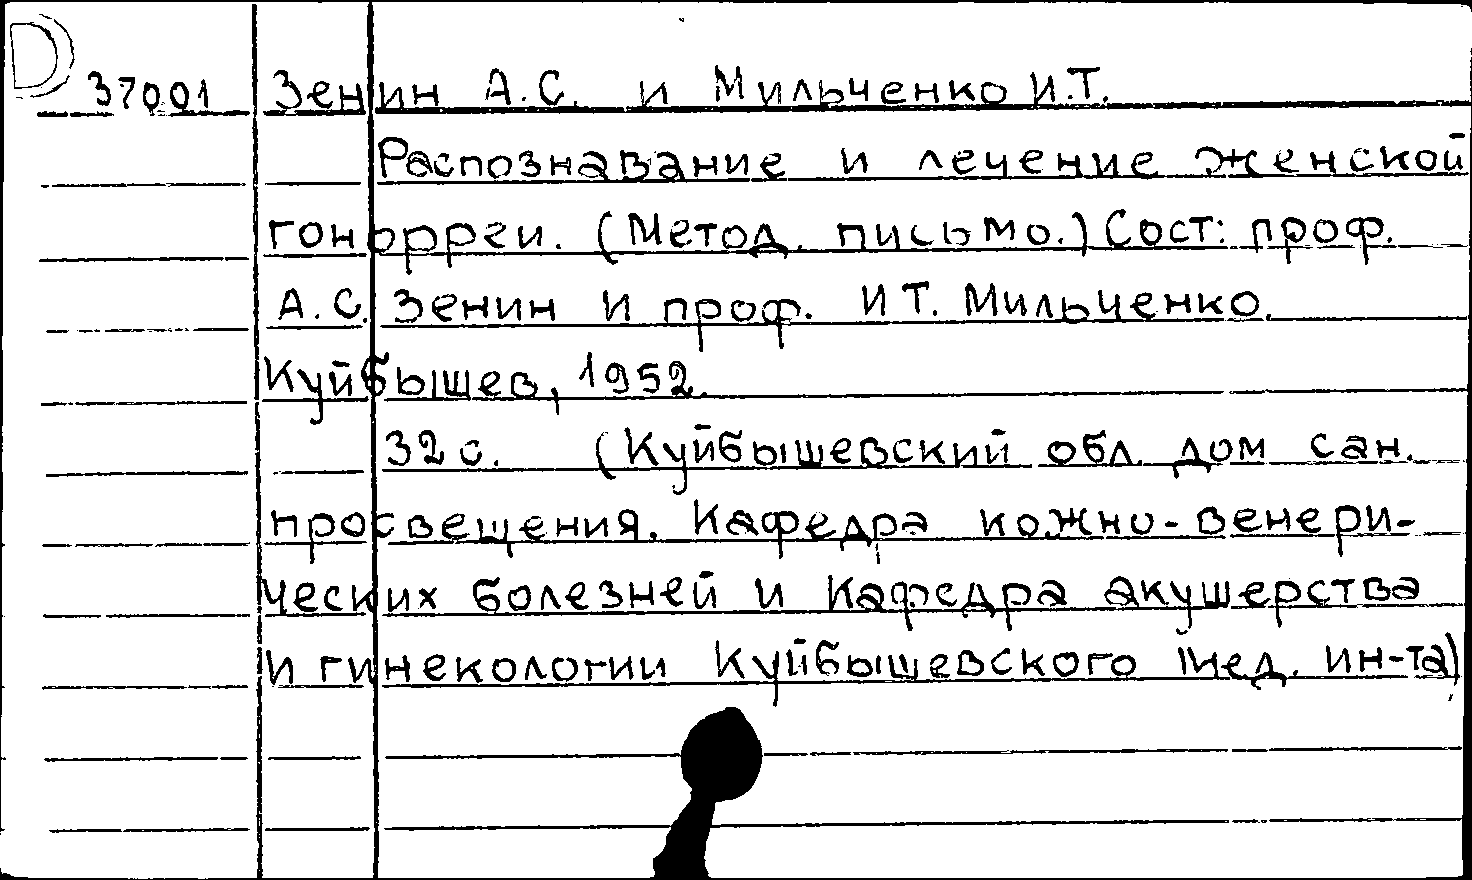 37001 Зенин А.С. и Мильченко И.Т.
Распознавание и лечение женской
гонорреи. (Метод. письмо.) Сост: проф.
А.С. Зенин и проф. И Т. Мильченко.
Куйбышев, 1952.
32 с. (Куйбышевский обл. дом сан.
просвещения. Кафедра кожно-венери-
ческих болезней и Кафедра акушерства
и гинекологии Куйбышевского мед. ин-та)